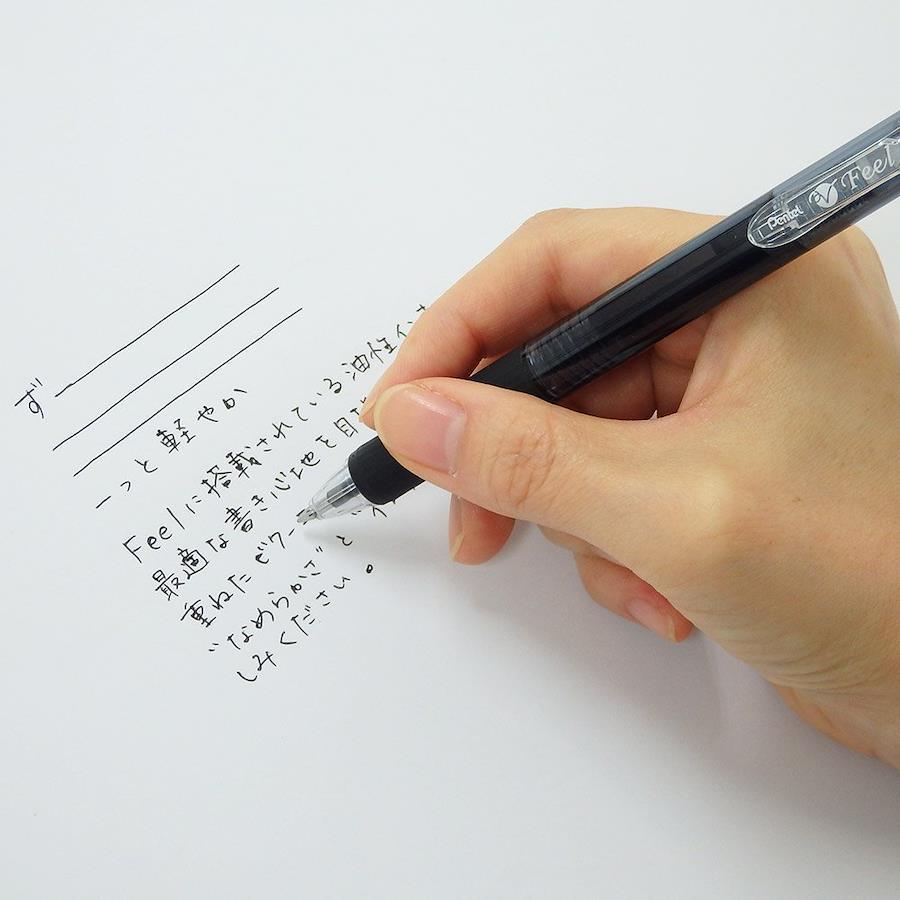 ず
ーっと軽やか
Feelに搭載されている油性イン
最適な書き心地を目
重ねたビクー
“なめらかさ”と
しみください。
Pentel Feel